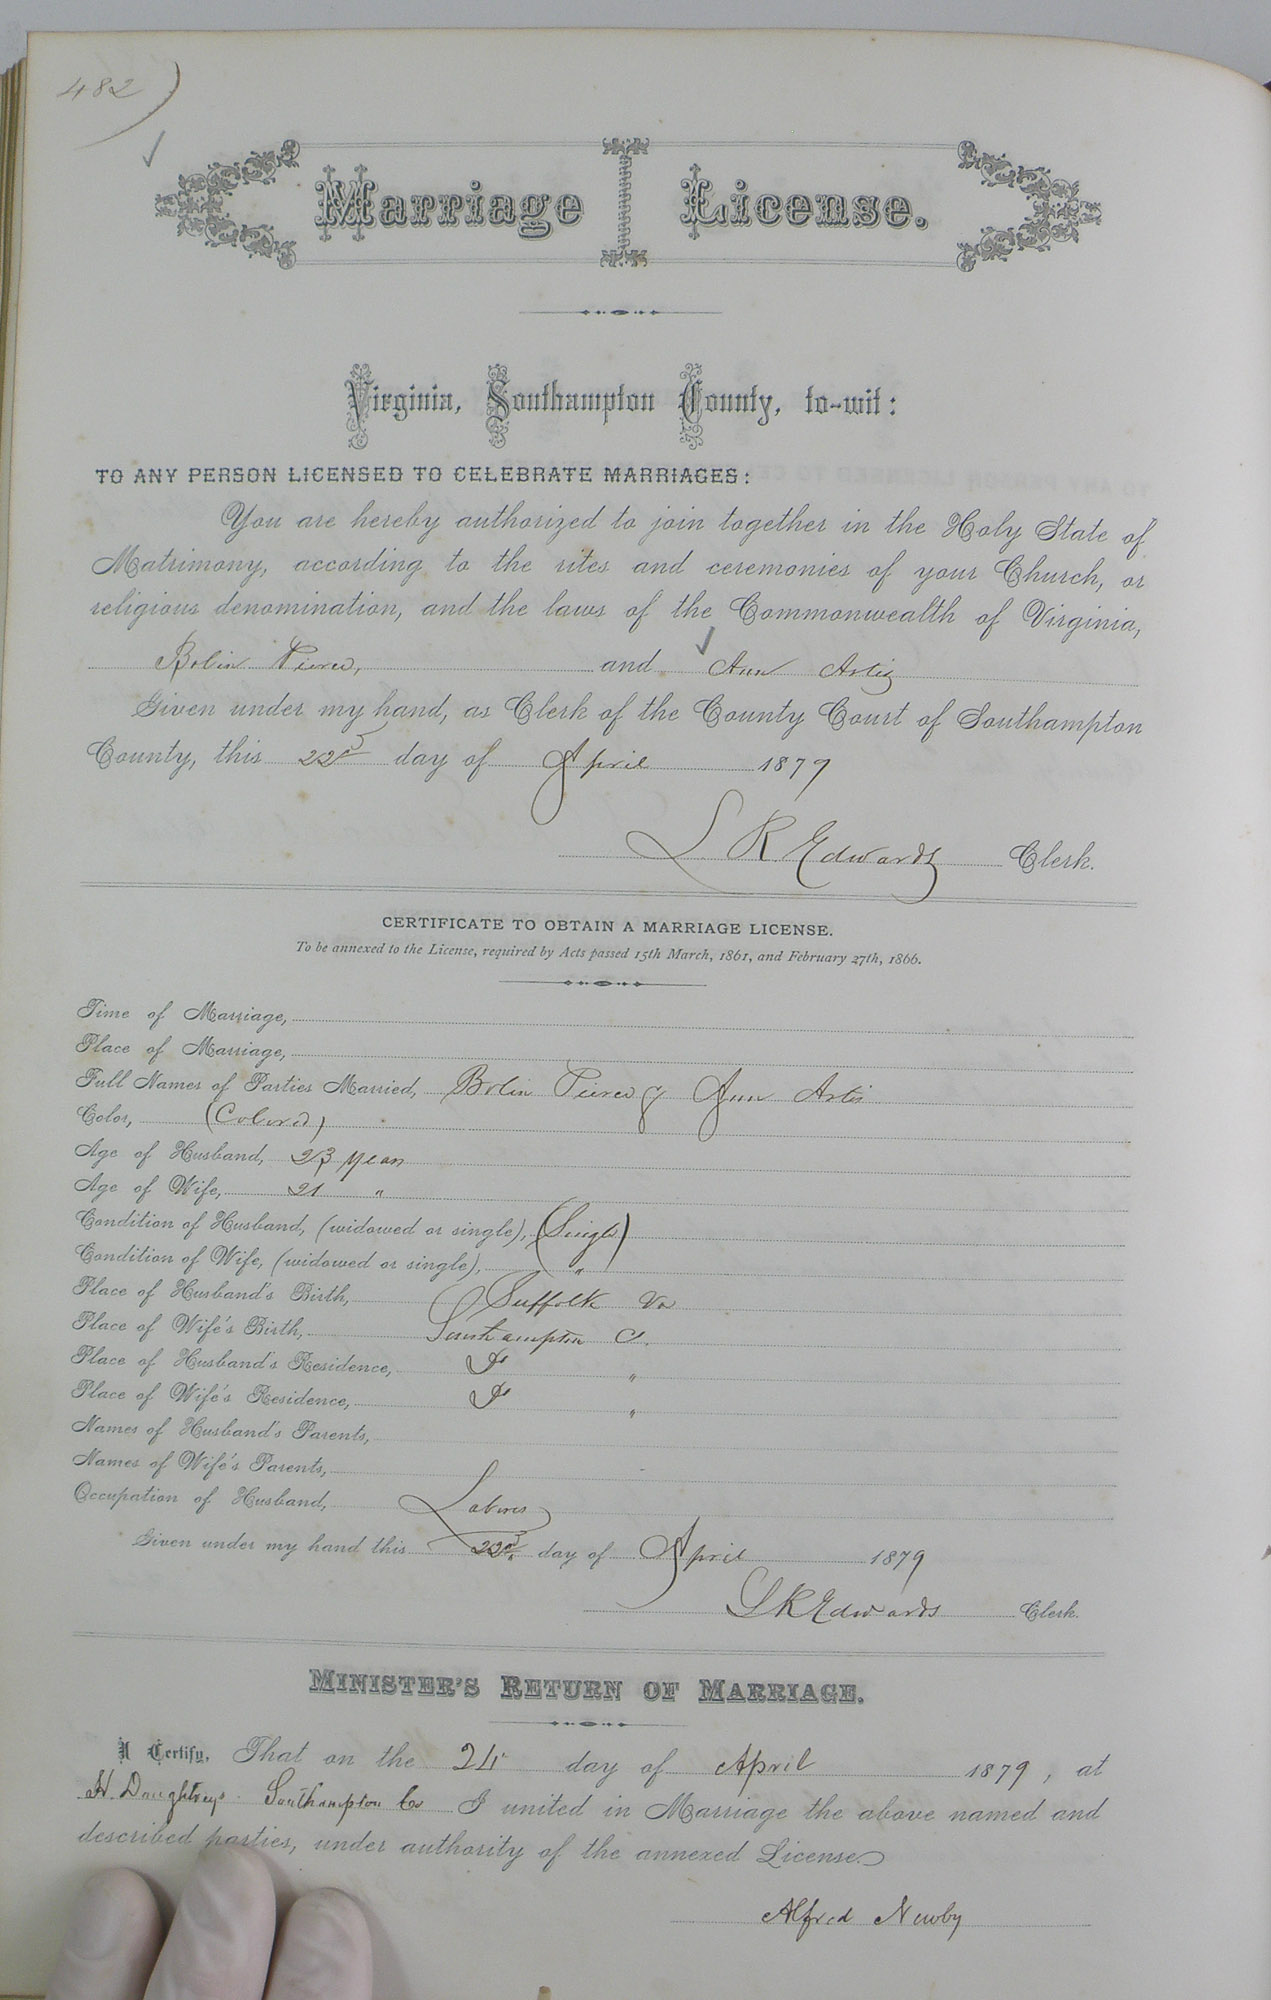 482)
Marriage License.
Virginia, Southampton County, to-wit:
TO ANY PERSON LICENSED TO CELEBRATE MARRIAGES:
You are hereby authorized to join together in the Holy State of
Matrimony, according to the rites and ceremonies of your Church, or
religious denomination, and the laws of the Commonwealth of Virginia,
Bolin Pierce, and Ann Artis
Given under my hand, as Clerk of the County Court of Southampton
County, this 22nd day of April 1879
L R Edwards Clerk.
CERTIFICATE TO OBTAIN A MARRIAGE LICENSE.
To be annexed to the License, required by Acts passed 15th March, 1861, and February 27th, 1866.
Time of Marriage,
Place of Marriage,
Full Names of Parties Married, Bolin Pierce & Ann Artis
Color, (Colored)
Age of Husband, 23 years
Age of Wife, 21 "
Condition of Husband, (widowed or single), (Single)
Condition of Wife, (widowed or single), "
Place of Husband's Birth, Suffolk Va
Place of Wife's Birth, Southampton Co.
Place of Husband's Residence, Do "
Place of Wife's Residence, Do "
Names of Husband's Parents,
Names of Wife's Parents,
Occupation of Husband, Laborer
Given under my hand this 22nd day of April 1879
L R Edwards Clerk.
MINISTER'S RETURN OF MARRIAGE.
I Certify, That on the 24 day of April 1879, at
H. Daughtreys Southampton Co I united in Marriage the above named and
described parties, under authority of the annexed License.
Alfred Newby